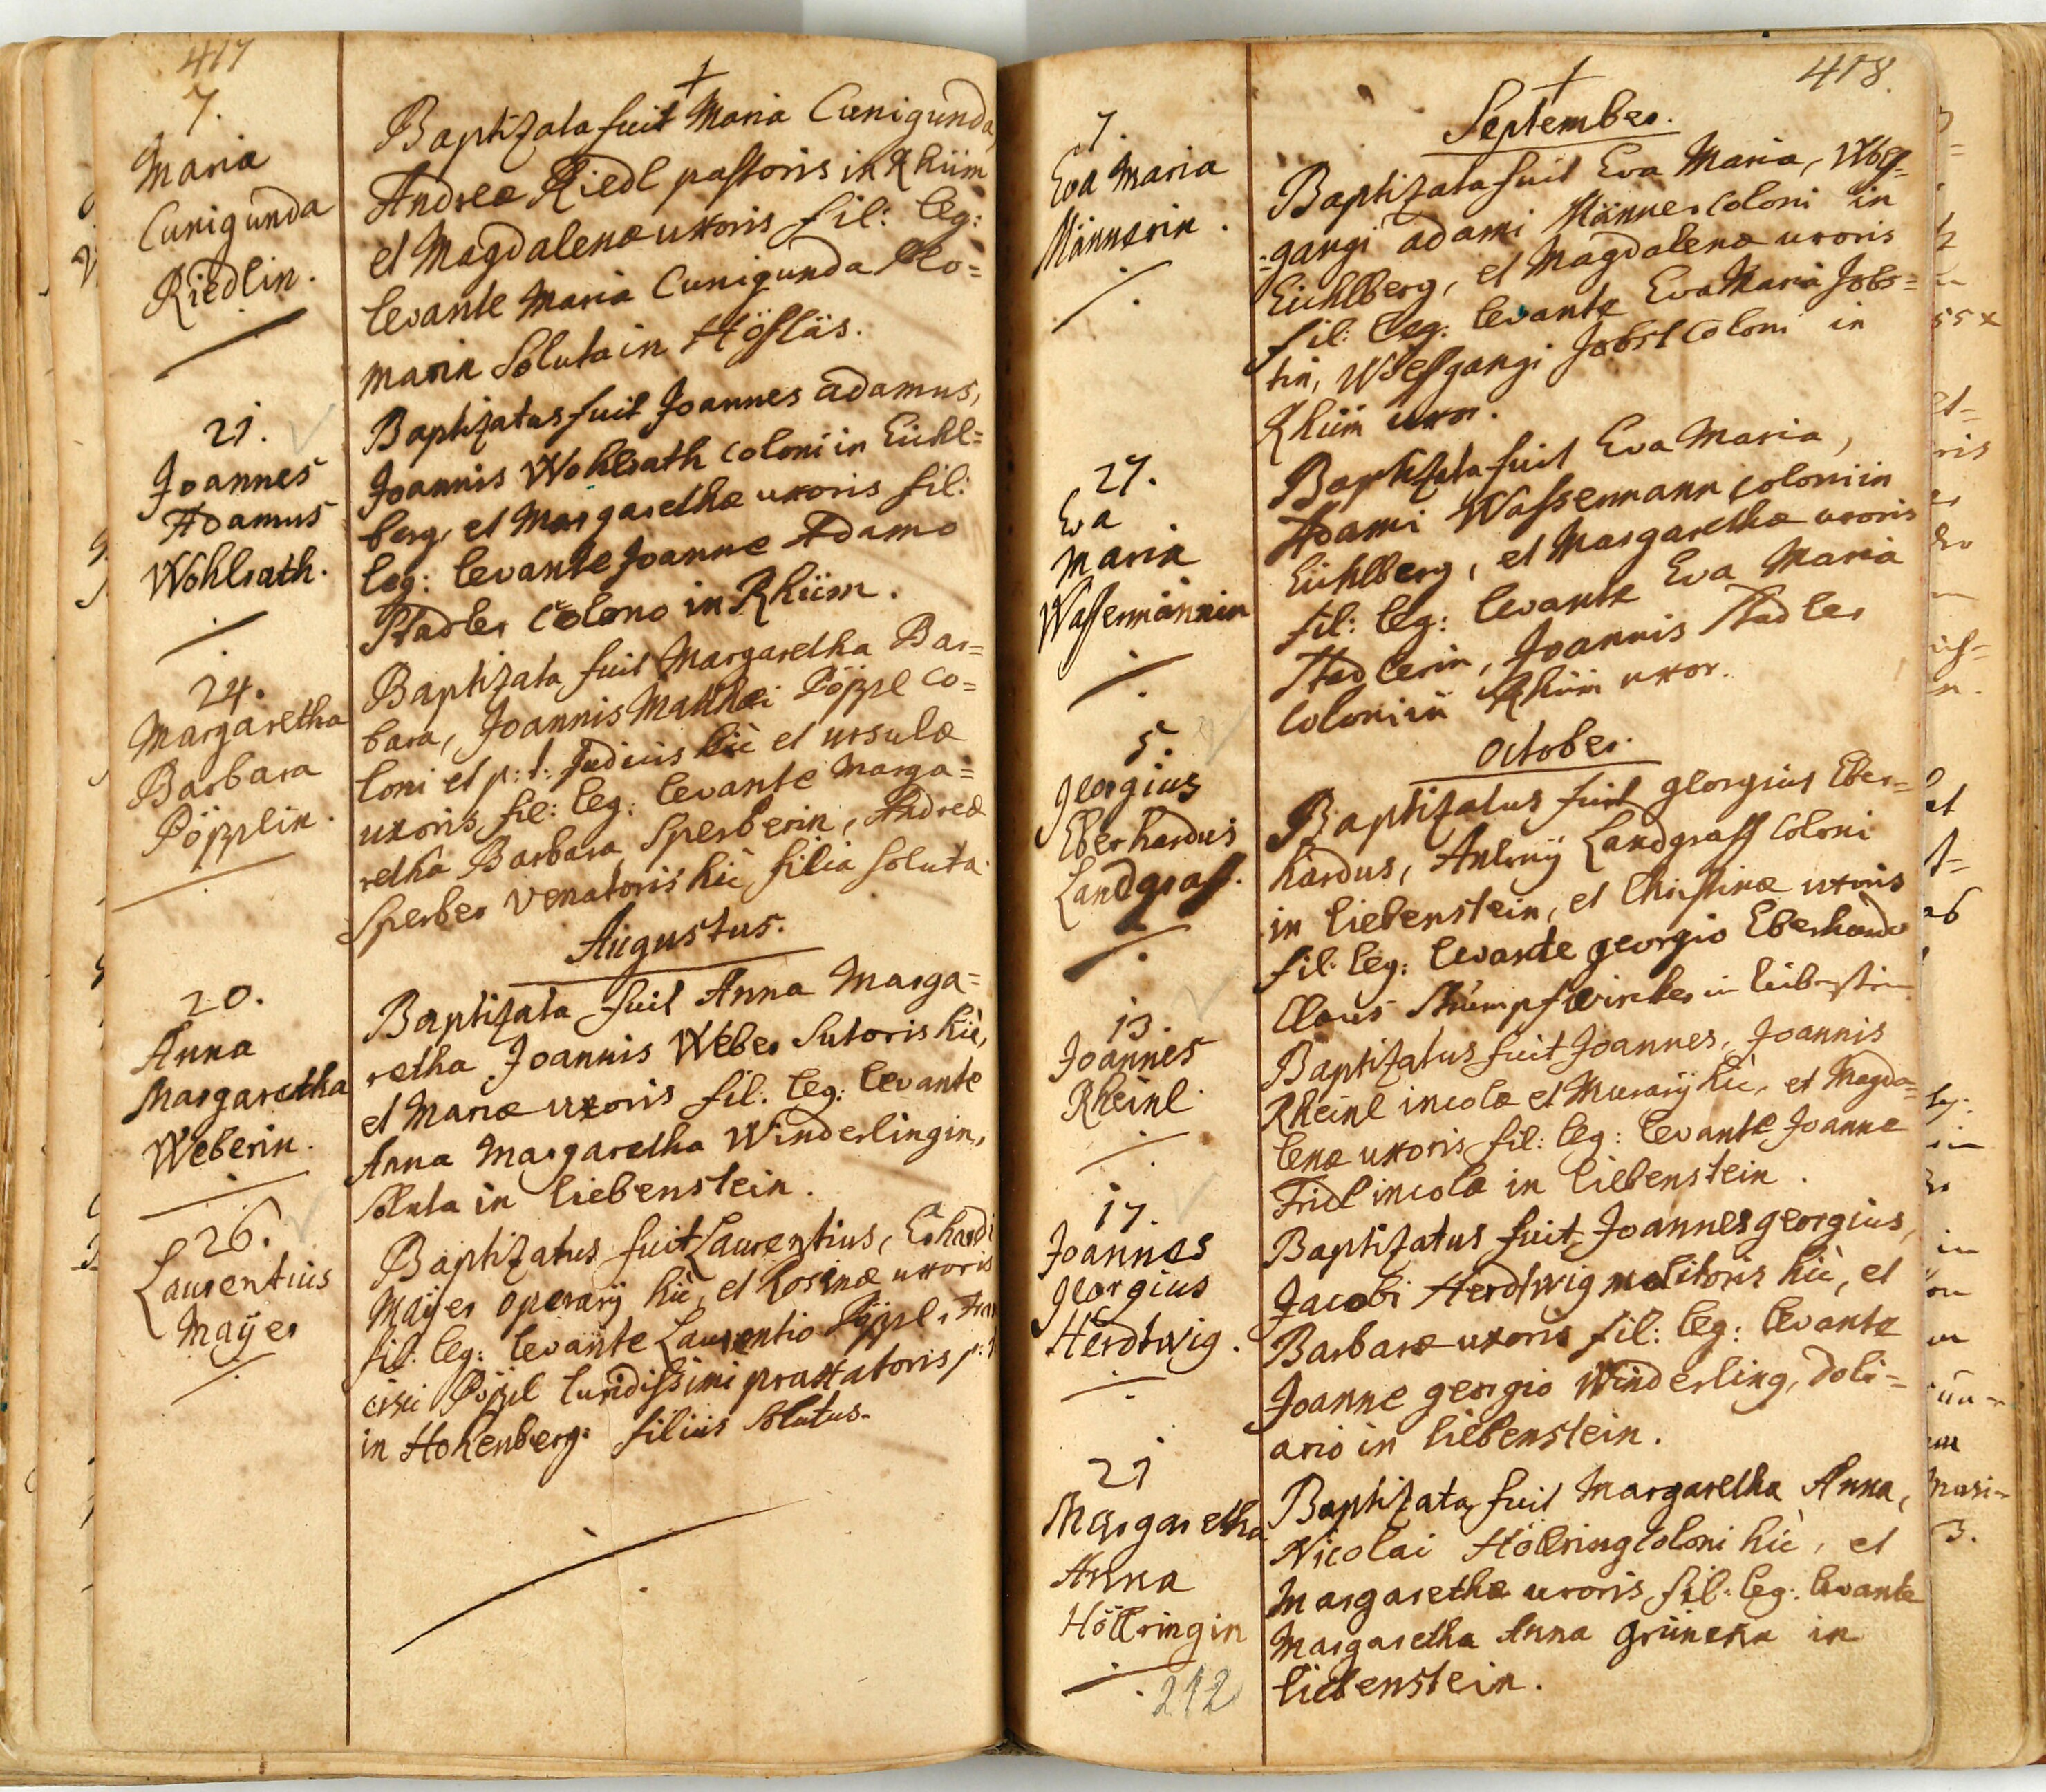 417
7.
Maria
Cunigunda
Riedlin.
Baptizata fuit Maria Cunigunda,
Andreæ Riedl pastoris in Rhüm
et Magdalenæ uxoris fil: leg:
levante Maria Cunigunda
Soluta in Höfläs.
21.
Joannes
Adamus
Wohlrath.
Baptizatus fuit Joannes Adamus,
Joannis Wohlrath coloni in Eichl=
berg, et Margarethæ uxoris fil:
leg: levante Joanne Adamo
Stadler Colono in Rhüm.
24.
Margaretha
Barbara
Pöpplin.
Baptizata fuit Margaretha Bar=
bara, Joannis Matthæi Pöppl co=
loni et p: t: Judicis hic et Ursulæ
uxoris fil: leg: levante Marga=
retha Barbara Sperberin, Andreæ
Sperber venatoris hic filia soluta.
Augustus.
20.
Anna
Margaretha
Weberin.
Baptizata fuit Anna Marga=
retha Joannis Weber Sutoris hic,
et Mariæ uxoris fil. leg: levante
Anna Margaretha Winderlingin,
soluta in Liebenstein.
26.
Laurentius
Maÿer
Baptizatus fuit Laurentius, Erhardi
Maÿer operarÿ hic, et Rosinæ uxoris
fil: leg: levante Laurentio Pöppl, Fran
cisci Pöppl p: t:
in Hohenberg: filius solutus.
418.
September.
7.
Eva Maria
Männerin.
Baptizata fuit Eva Maria, Wolf=
=gangi Adami Männer Coloni in
Eichlberg, et Magdalenæ uxoris
fil: leg: levante Eva Maria Jobs=
tin, Wolfgangi Jobst Coloni in
Rhüm uxor.
27.
Eva
Maria
Wassermännin
Baptizata fuit Eva Maria,
Adami Wassermann coloni in
Eichlberg, et Margarethæ uxoris
fil: leg: levante Eva Maria
Stadlerin, Joannis Stadler
coloni in Rhüm uxor.
October.
5.
Georgius
Eberhardus
Landgraff.
Baptizatus fuit Georgius Eber=
hardus, Antonÿ Landgraff Coloni
in Liebenstein, et Christinæ uxoris
fil: leg: levante Georgio Eberhardo
Claus Strumpfwircker in Liebenstein
13.
Joannes
Rheinl.
Baptizatus fuit Joannes, Joannis
Rheinl incolæ et Murarÿ hic, et Magda=
lenæ uxoris fil: leg: levante Joanne
Fridl incola in Liebenstein.
17.
Joannes
Georgius
Herdtwig.
Baptizatus fuit Joannes Georgius,
Jacobi Herdtwig molitoris hic, et
Barbaræ uxoris fil: leg: levante
Joanne Georgio Winderling, doli=
ario in Liebenstein.
21
Margaretha
Anna
Höllringin
Baptizata fuit Margaretha Anna,
Nicolai Höllring Coloni hic, et
Margarethæ uxoris, fil: leg: levante
Margaretha Anna in
Liebenstein.
212